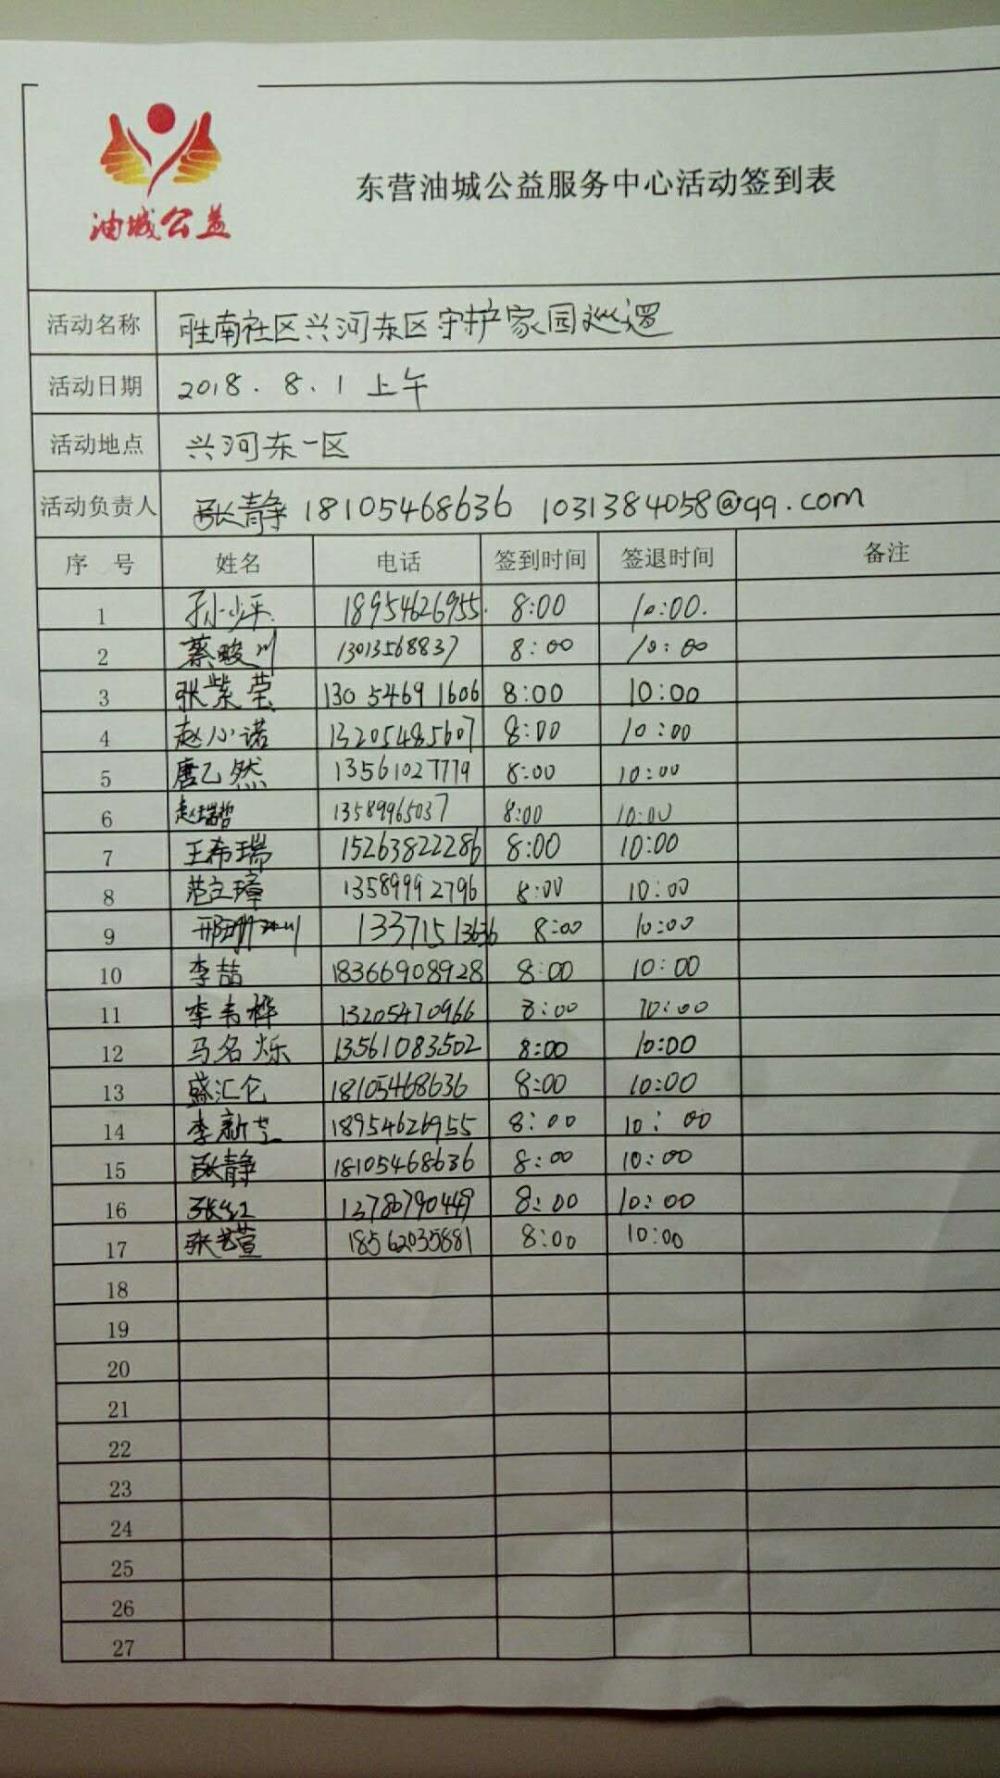 油城公益
东营油城公益服务中心活动签到表
活动名称 胜南社区兴河东区守护家园巡逻
活动日期 2018.8.1上午
活动地点 兴河东一区
活动负责人 张静 18105468636 1031384058@qq.com
序号 姓名 电话 签到时间 签退时间 备注
1 孙少平 18954626955 8:00 10:00
2 蔡畯川 13013568837 8:00 10:00
3 张紫莹 130 5469 1606 8:00 10:00
4 赵小诺 13205485607 8:00 10:00
5 唐乙然 13561027779 8:00 10:00
6 赵瑞哲 13589965037 8:00 10:00
7 王希瑞 15263822286 8:00 10:00
8 范立璋 13589992796 8:00 10:00
9 邢 13371513636 8:00 10:00
10 李喆 18366908928 8:00 10:00
11 李韦桦 13205470966 8:00 10:00
12 马名烁 13561083502 8:00 10:00
13 盛汇仑 18105468636 8:00 10:00
14 李新 18954626955 8:00 10:00
15 张静 18105468636 8:00 10:00
16 张红 13780790449 8:00 10:00
17 张艺萱 18562035881 8:00 10:00
18
19
20
21
22
23
24
25
26
27